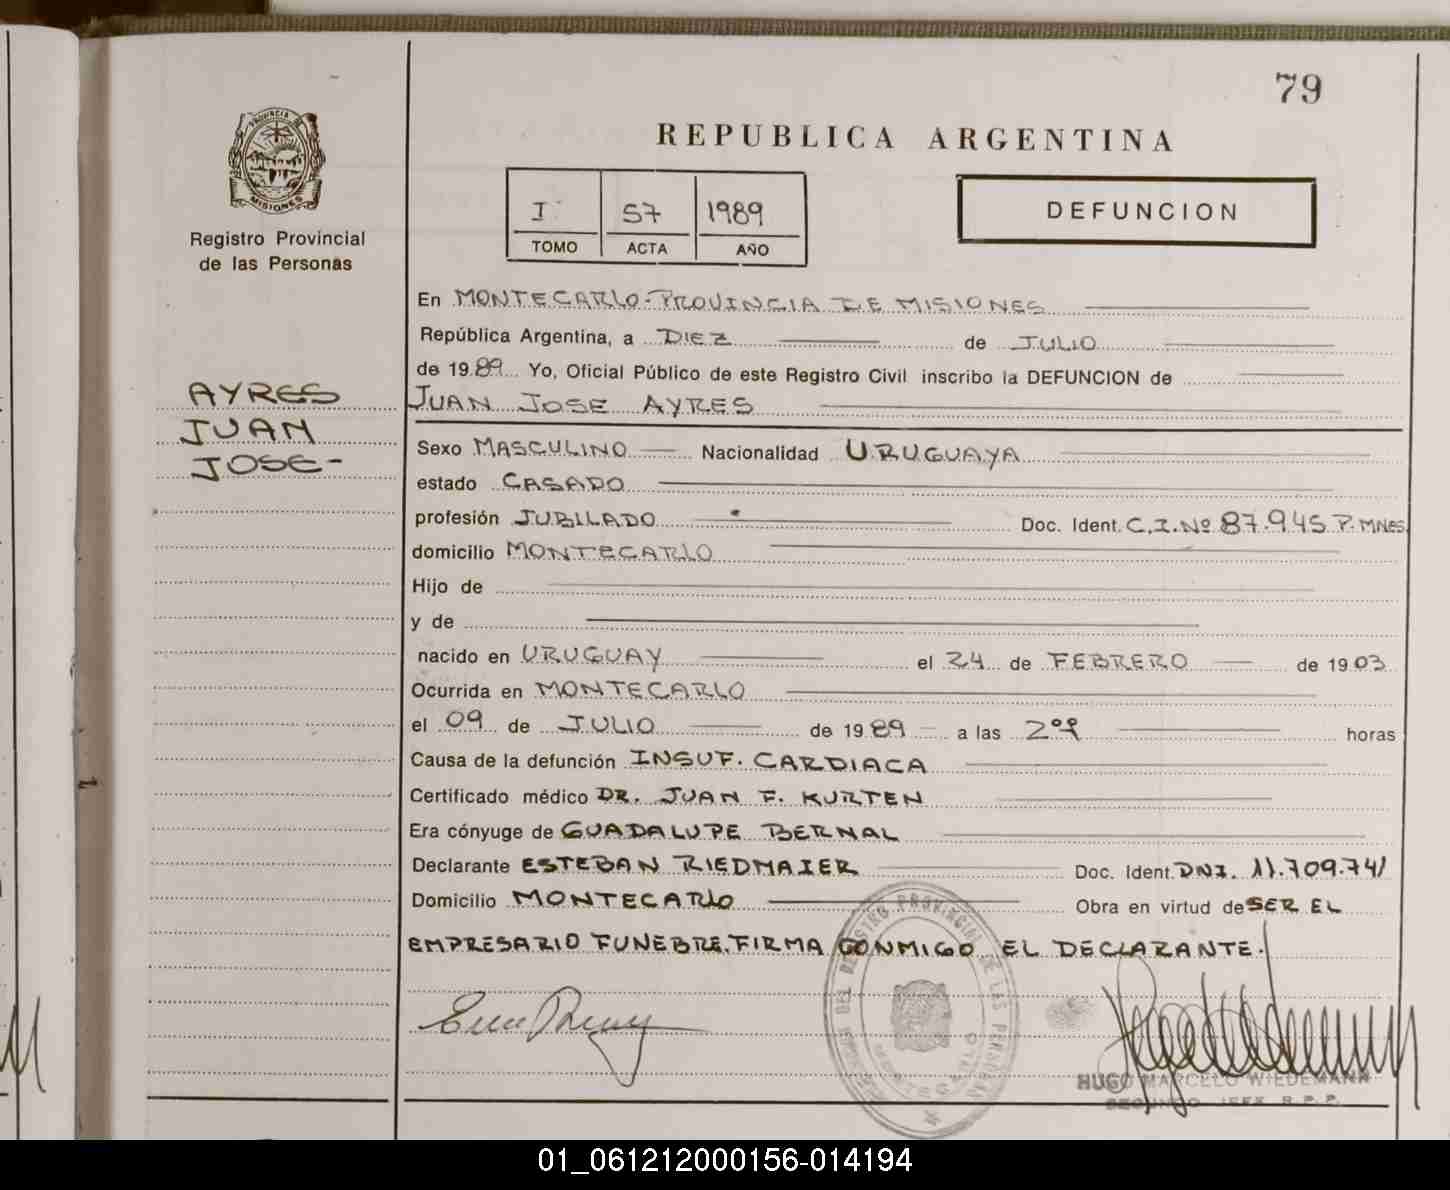 79
PROVINCIA DE
MISIONES
Registro Provincial
de las Personas
REPUBLICA ARGENTINA
I 57 1989
TOMO ACTA AÑO
DEFUNCION
AYRES
JUAN
JOSE-
En MONTECARLO-PROVINCIA DE MISIONES
República Argentina, a DIEZ de JULIO
de 1989 Yo, Oficial Público de este Registro Civil inscribo la DEFUNCION de
JUAN JOSE AYRES
Sexo MASCULINO Nacionalidad URUGUAYA
estado CASADO
profesión JUBILADO Doc. Ident. C.I.Nº 87.945 P. MNES
domicilio MONTECARLO
Hijo de
y de
nacido en URUGUAY el 24 de FEBRERO de 1903
Ocurrida en MONTECARLO
el 09 de JULIO de 1989 a las 2ºº horas
Causa de la defunción INSUF. CARDIACA
Certificado médico DR. JUAN F. KURTEN
Era cónyuge de GUADALUPE BERNAL
Declarante ESTEBAN RIEDMAIER Doc. Ident. DNI. 11.709.741
Domicilio MONTECARLO Obra en virtud de SER EL
EMPRESARIO FUNEBRE. FIRMA CONMIGO EL DECLARANTE.
REGISTRO PROVINCIAL DE LAS PERSONAS
MONTECARLO
HUGO MARCELO WIEDEMANN
SEGUNDO JEFE R.P.P.
01_061212000156-014194